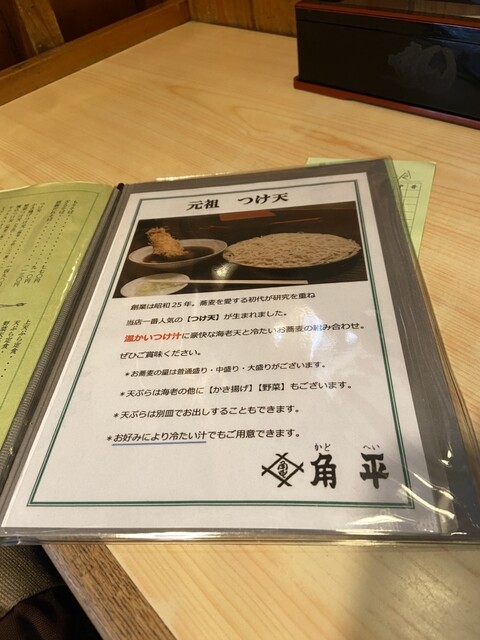 元祖 つけ天
創業は昭和25年。蕎麦を愛する初代が研究を重ね
当店一番人気の【つけ天】が生まれました。
温かいつけ汁に豪快な海老天と冷たいお蕎麦の組み合わせ。
ぜひご賞味ください。
*お蕎麦の量は普通盛り・中盛り・大盛りがございます。
*天ぷらは海老の他に【かき揚げ】【野菜】もございます。
*天ぷらは別皿でお出しすることもできます。
*お好みにより冷たい汁でもご用意できます。
かど へい
角平
上天ぷら定食
天ぷら定食